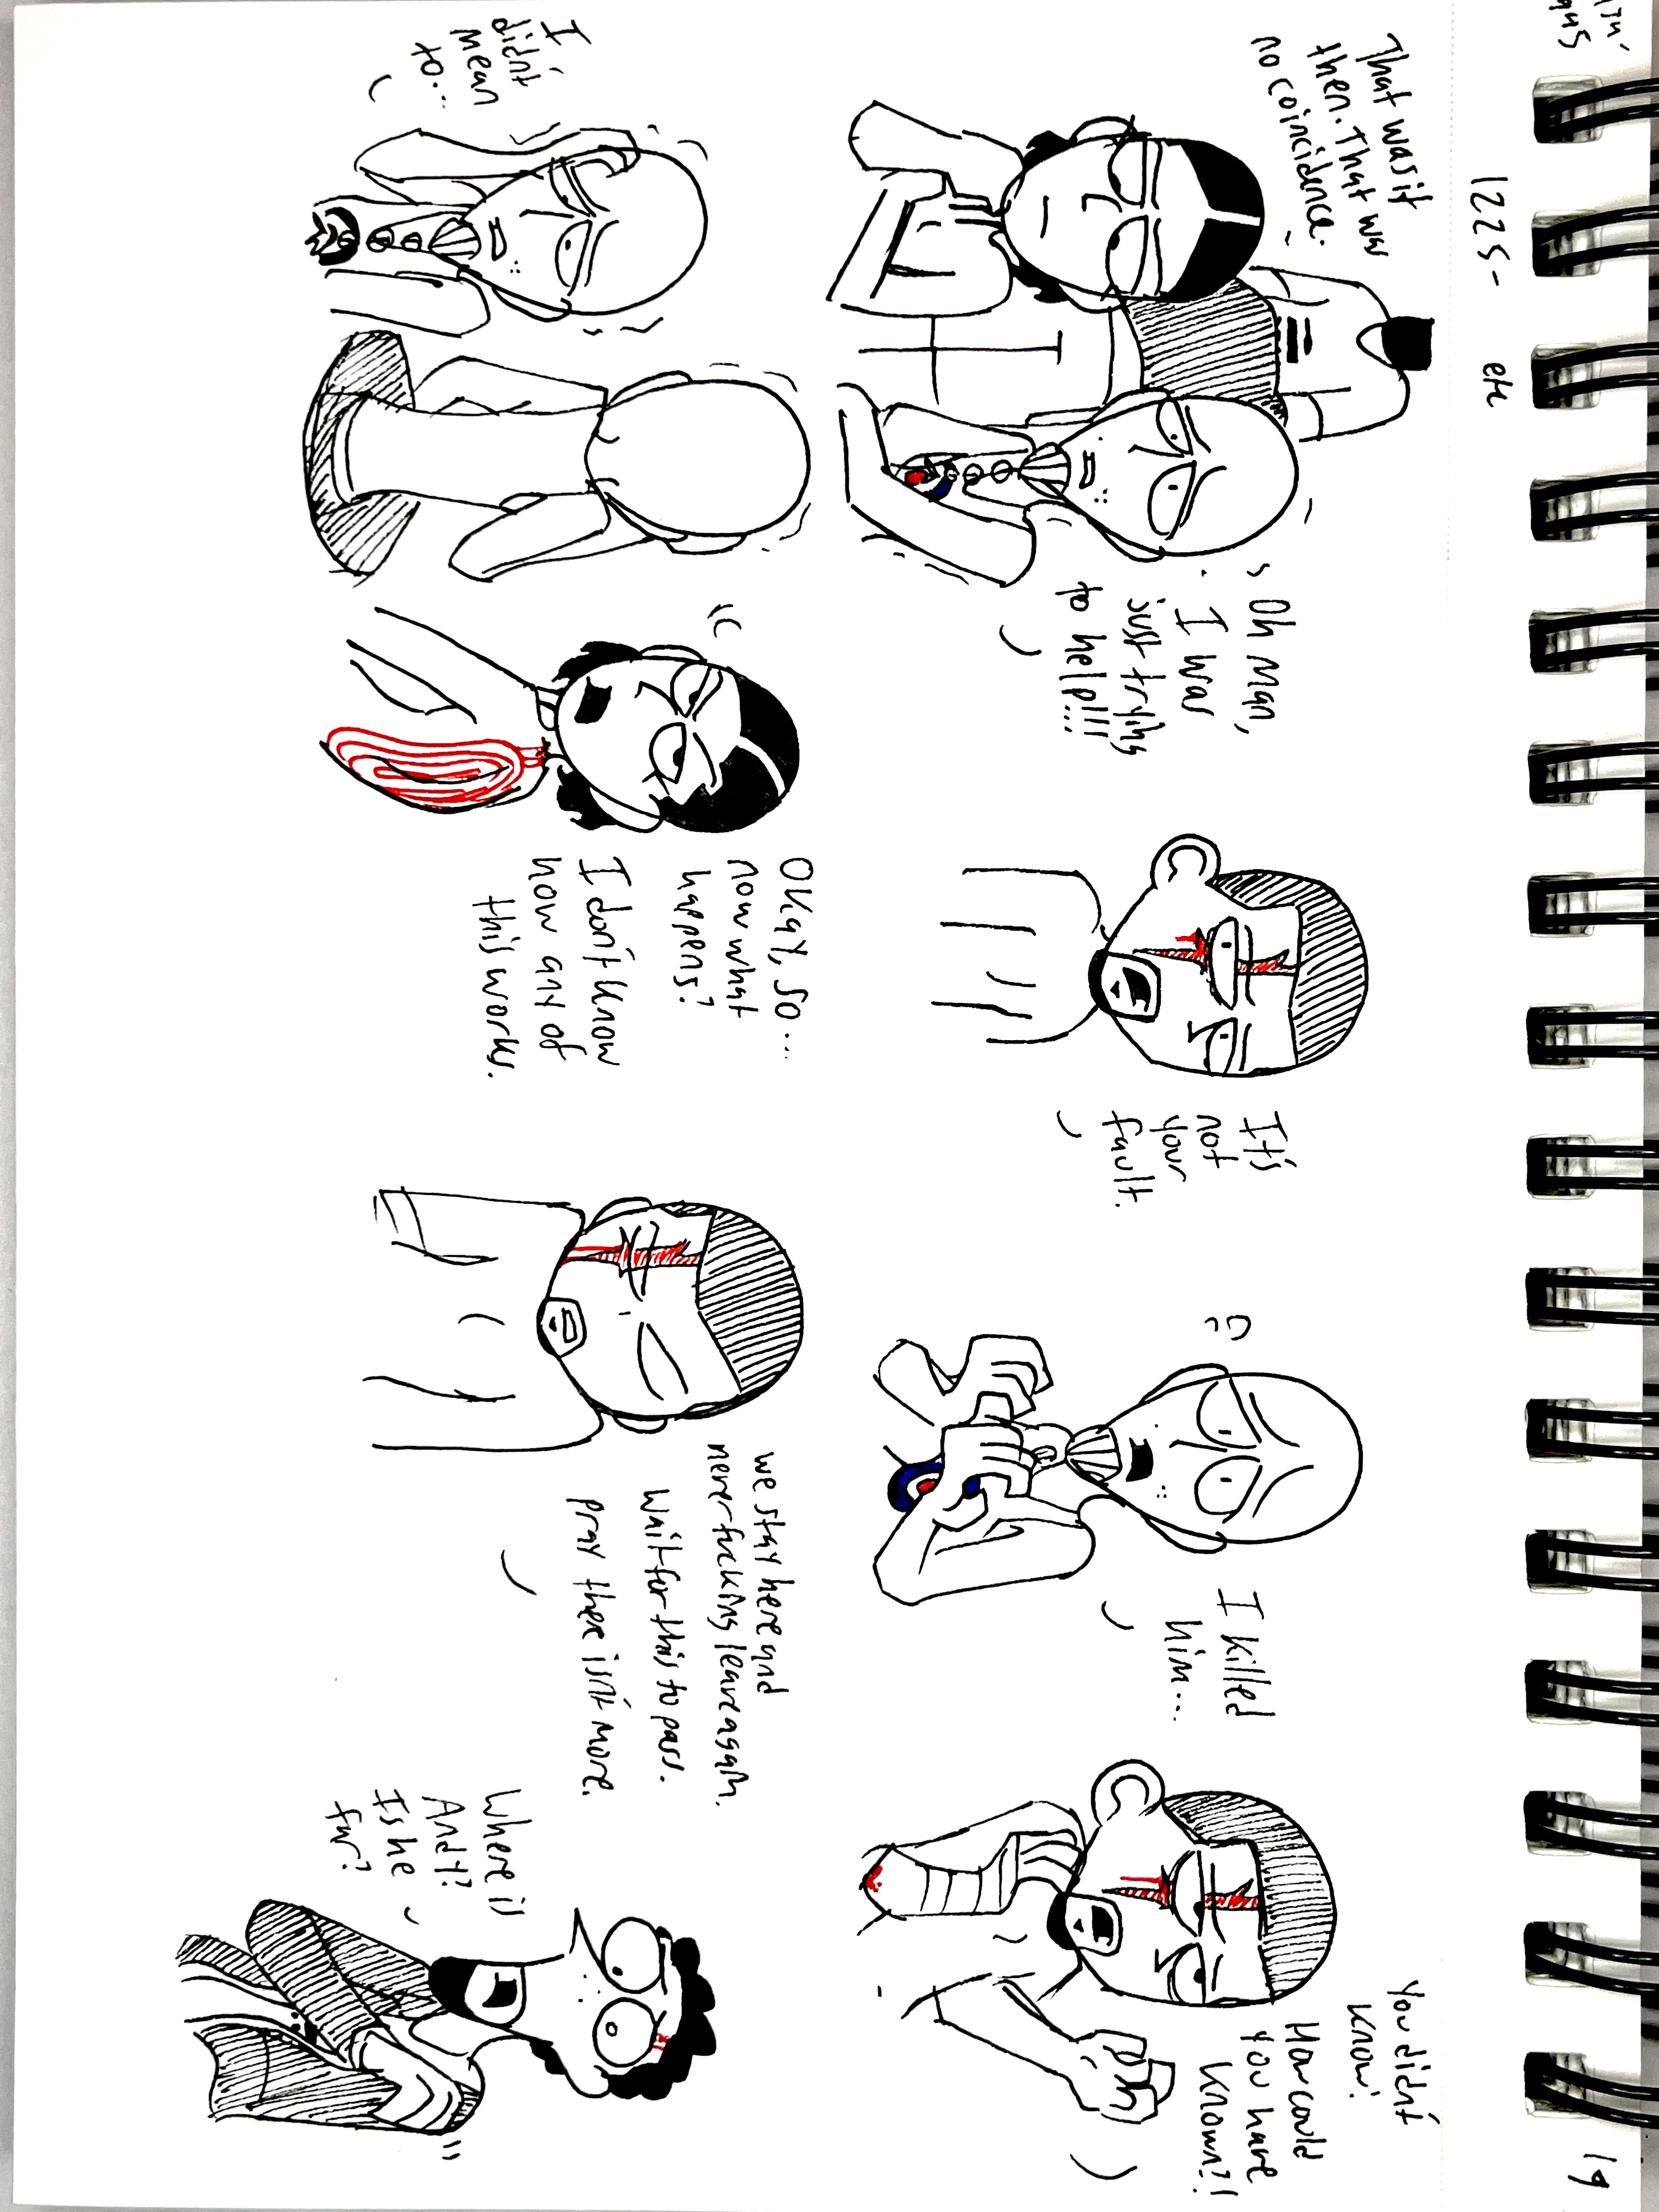 19
1225-
etc
That was it
then. That was
no coincidence.
Oh man,
I was
just trying
to help!!!
It's
not
your
fault.
I killed
him...
You didn't
know!
How could
you have
known?!
I
didn't
mean
to...
Okay, so...
now what
happens?
I don't know
how any of
this works.
we stay here and
never fucking leave again.
Wait for this to pass.
pray there isn't more.
Where is
Andy?
Is he
far?